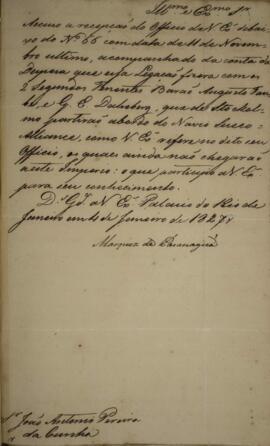 Illmo. e Exmo. Sr.
Accuso a recepção do Officio de V. Ex. debai-
xo do Nº 66 com data de 11 de Novem-
bro ultimo, acompanhado da conta da
Despeza que essa Legação fizera com os
2 Segundos Tenentes Barão Augusto
be, e G. E. Dalsberg, que de Stockol-
mo partirão a bordo do Navio Sueco
Alliance, como V. Ex. refere no dito seu
Officio, os quaes ainda não chegarão
a este Imperio: o que participo a V. Ex.
para seu conhecimento.
Ds. Gde. a V. Ex. Palacio do Rio de
Janeiro em de Janeiro de 1827
Marquez de Paranaguá
Sr. João Antonio Pereira
da Cunha